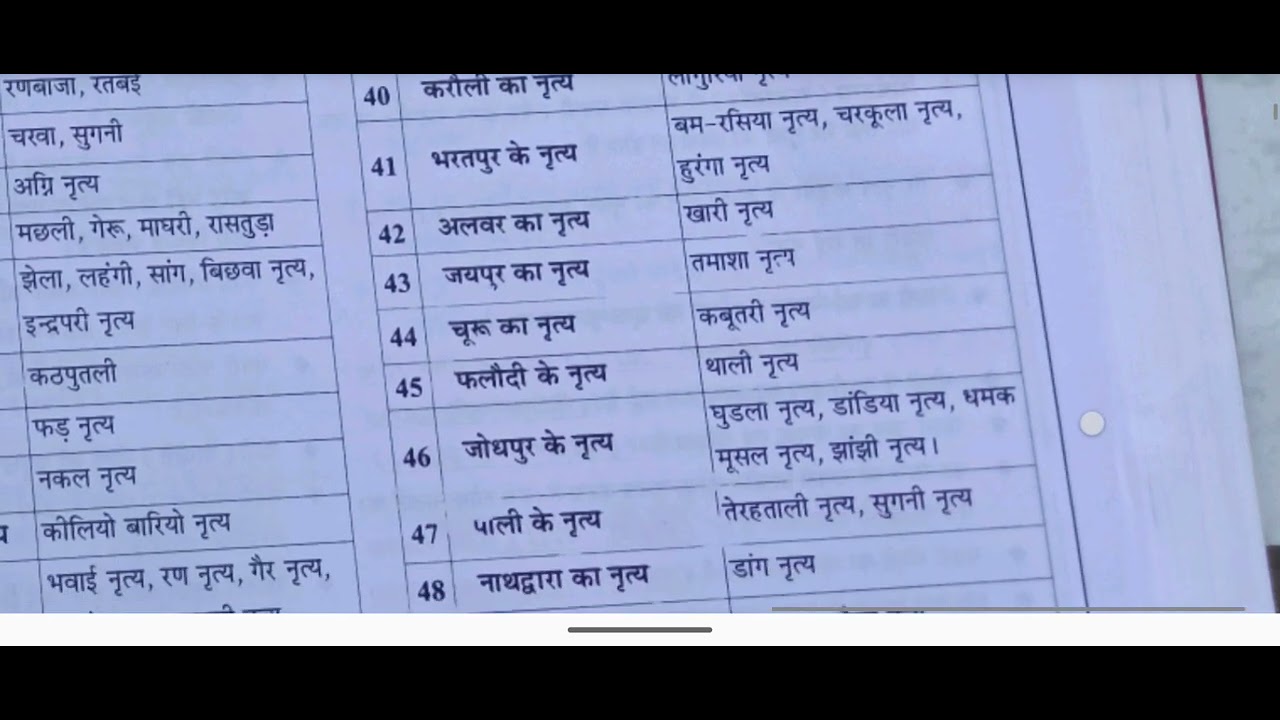 रणबाजा, रतबई
चरवा, सुगनी
अग्नि नृत्य
मछली, गेरू, माघरी, रासतुड़ा
झेला, लहंगी, सांग, बिछवा नृत्य,
इन्द्रपरी नृत्य
कठपुतली
फड़ नृत्य
नकल नृत्य
कीलियो बारियो नृत्य
भवाई नृत्य, रण नृत्य, गैर नृत्य,
40 करौली का नृत्य लांगुरिया नृत्य
41 भरतपुर के नृत्य बम-रसिया नृत्य, चरकूला नृत्य,
हुरंगा नृत्य
42 अलवर का नृत्य खारी नृत्य
43 जयपुर का नृत्य तमाशा नृत्य
44 चूरू का नृत्य कबूतरी नृत्य
45 फलौदी के नृत्य थाली नृत्य
46 जोधपुर के नृत्य घुडला नृत्य, डांडिया नृत्य, धमक
मूसल नृत्य, झांझी नृत्य।
47 पाली के नृत्य तेरहताली नृत्य, सुगनी नृत्य
48 नाथद्वारा का नृत्य डांग नृत्य